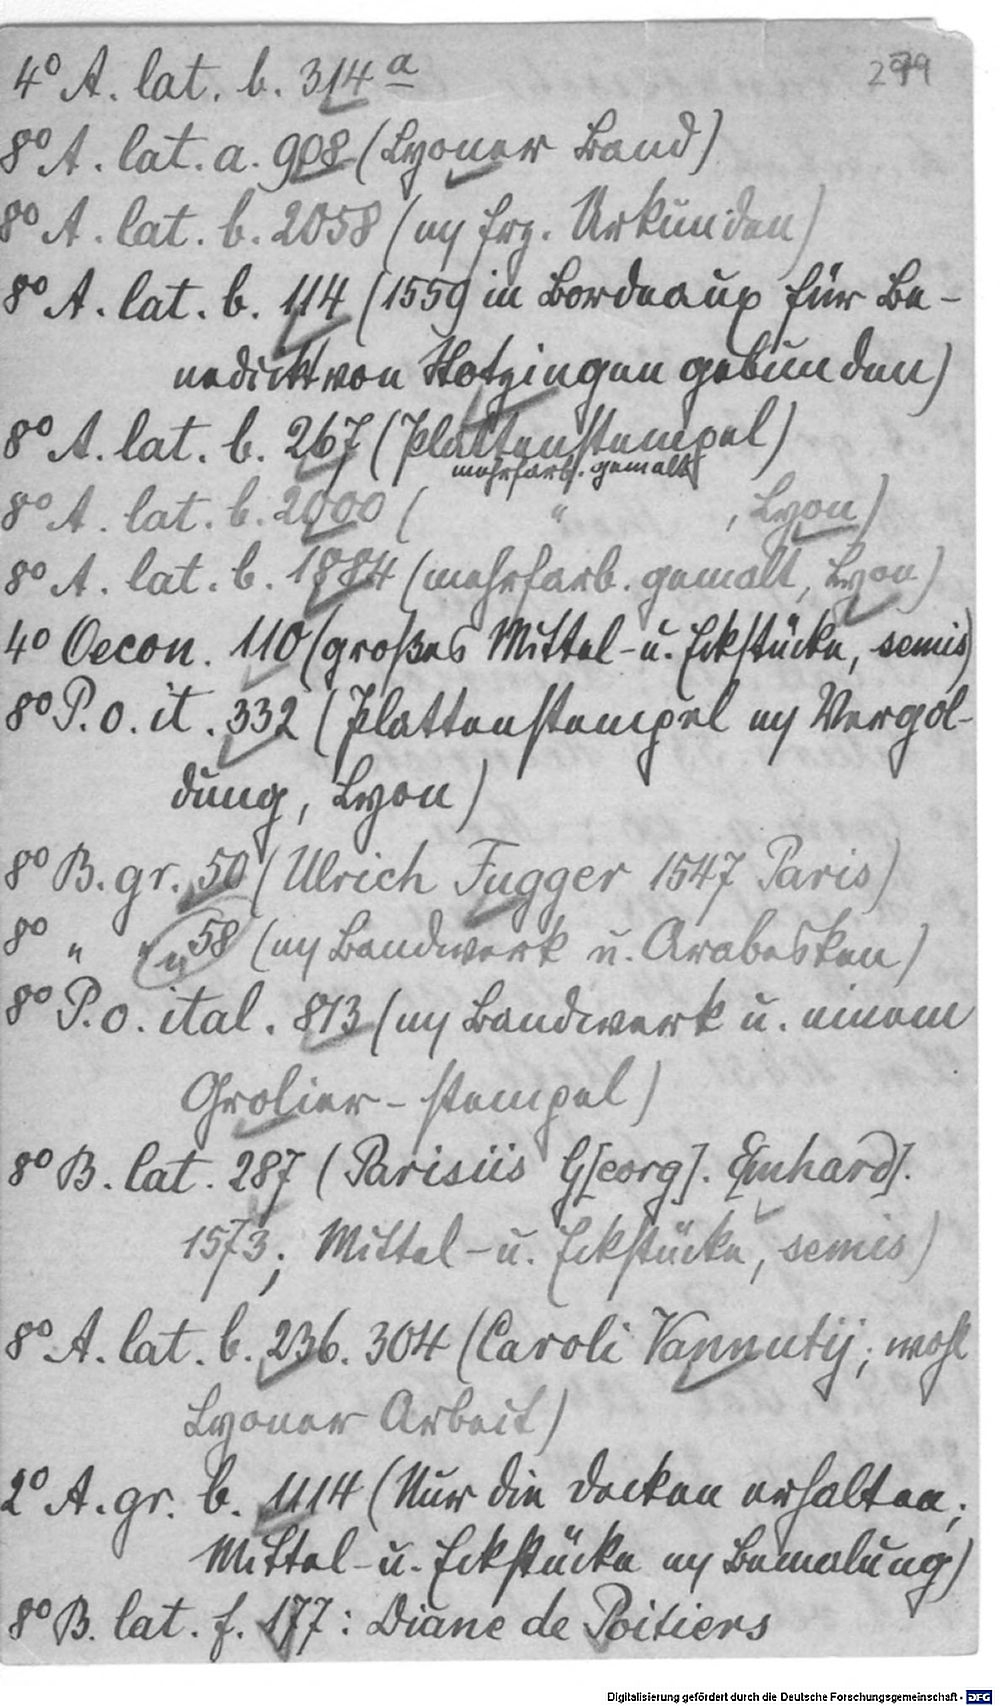 299
4° A. lat. b. 314 a
8° A. lat. a. 908 (Lyoner Band)
8° A. lat. b. 2058 (m frz. Urkunden)
8° A. lat. b. 114 (1559 in Bordeaux für Be-
nedickt von Hotzingen gebunden)
8° A. lat. b. 267 (Plattenstempel)
mehrfarb. gemalt
8° A. lat. b. 2000 ( " , Lyon)
8° A. lat. b. 1884 (mehrfarb. gemalt, Lyon)
4° Oecon. 110 (großes Mittel- u. Eckstücke, semis)
8° P. o. it. 332 (Plattenstempel m Vergol-
dung, Lyon)
8° B. gr. 50 (Ulrich Fugger 1547 Paris)
8° " " 58 (m Bandwerk u. Arabesken)
8° P. o. ital. 813 (m Bandwerk u. einem
Grolier-stempel)
8° B. lat. 287 (Parisiis G[eorg]. E[inhard].
1573; Mittel- u. Eckstücke, semis)
8° A. lat. b. 236. 304 (Caroli Vannutij; wohl
Lyoner Arbeit)
2° A. gr. b. 1114 (Nur die Decken erhalten;
Mittel- u. Eckstücke m Bemalung)
8° B. lat. f. 177: Diane de Poitiers
Digitalisierung gefördert durch die Deutsche Forschungsgemeinschaft - DFG